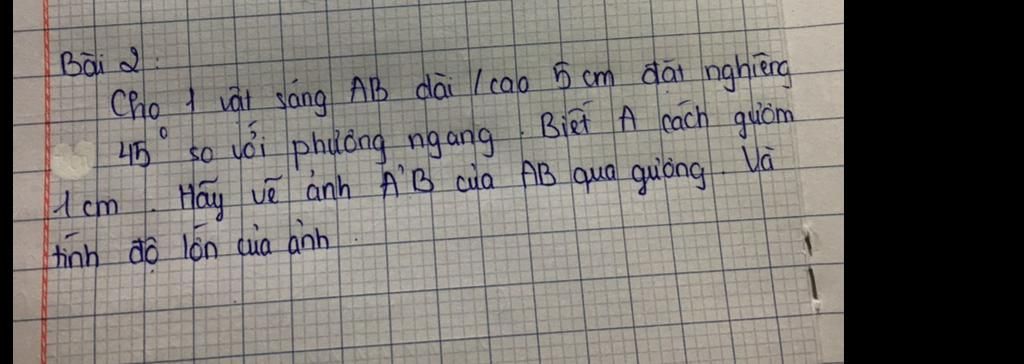 Bài 2:
Cho 1 vật sáng AB dài / cao 5 cm đặt nghiêng
45° so với phương ngang. Biết A cách gươm
1 cm. Hãy vẽ ảnh A'B của AB qua gương. Và
tính độ lớn của ảnh.